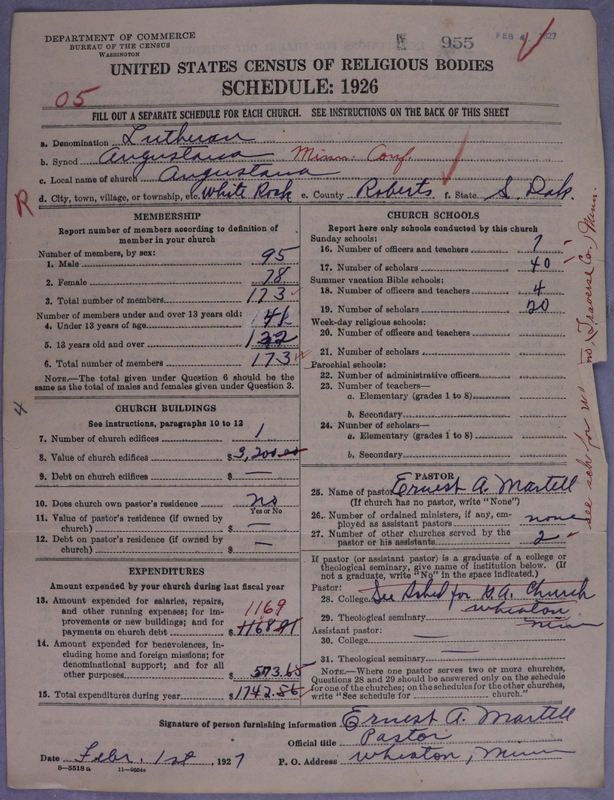 DEPARTMENT OF COMMERCE
BUREAU OF THE CENSUS
WASHINGTON
955
FEB 4 1927
UNITED STATES CENSUS OF RELIGIOUS BODIES
SCHEDULE: 1926
05
FILL OUT A SEPARATE SCHEDULE FOR EACH CHURCH. SEE INSTRUCTIONS ON THE BACK OF THIS SHEET
a. Denomination Lutheran
b. Synod Augustana Minn. Conf.
c. Local name of church Augustana
R
d. City, town, village, or township, etc. White Rock e. County Roberts f. State S. Dak.
MEMBERSHIP
Report number of members according to definition of member in your church
Number of members, by sex:
1. Male 95
2. Female 78
3. Total number of members 173
Number of members under and over 13 years old:
4. Under 13 years of age 41
5. 13 years old and over 132
6. Total number of members 173
NOTE.—The total given under Question 6 should be the same as the total of males and females given under Question 3.
4
CHURCH BUILDINGS
See instructions, paragraphs 10 to 12
7. Number of church edifices 1
8. Value of church edifices $3,200.00
9. Debt on church edifices $ —
10. Does church own pastor's residence? no
Yes or No
11. Value of pastor's residence (if owned by church) $ —
12. Debt on pastor's residence (if owned by church) $ —
EXPENDITURES
Amount expended by your church during last fiscal year
13. Amount expended for salaries, repairs, and other running expenses; for improvements or new buildings; and for payments on church debt 1169 $1168.91
14. Amount expended for benevolences, including home and foreign missions; for denominational support; and for all other purposes $573.65
15. Total expenditures during year $1742.56
CHURCH SCHOOLS
Report here only schools conducted by this church
Sunday schools:
16. Number of officers and teachers 7
17. Number of scholars 40
Summer vacation Bible schools:
18. Number of officers and teachers 4
19. Number of scholars 20
Week-day religious schools:
20. Number of officers and teachers
21. Number of scholars
Parochial schools:
22. Number of administrative officers
23. Number of teachers—
a. Elementary (grades 1 to 8)
b. Secondary
24. Number of scholars—
a. Elementary (grades 1 to 8)
b. Secondary
PASTOR
25. Name of pastor Ernest A. Martell
(If church has no pastor, write "None")
26. Number of ordained ministers, if any, employed as assistant pastors none
27. Number of other churches served by the pastor or his assistants 2
If pastor (or assistant pastor) is a graduate of a college or theological seminary, give name of institution below. (If not a graduate, write "No" in the space indicated.)
Pastor:
28. College See Sched for G.A. Church
29. Theological seminary Wheaton Minn
Assistant pastor:
30. College
31. Theological seminary
NOTE.—Where one pastor serves two or more churches, Questions 28 and 29 should be answered only on the schedule for one of the churches; on the schedules for the other churches, write "See schedule for ____ church."
Signature of person furnishing information Ernest A. Martell
Official title Pastor
Date Febr. 1st, 1927 P. O. Address Wheaton, Minn
8—5518a 11—9084
see sch for no, Traverse Co., Minn.